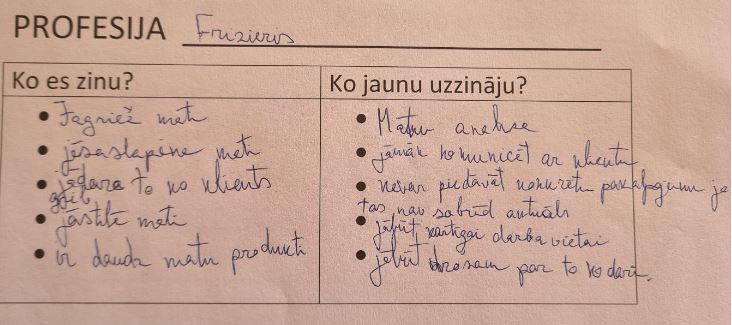 PROFESIJA Frizieris
Ko es zinu?
Ko jaunu uzzināju?
• Jāgriež mati
• jāsaslapina mati
• jādara to ko klients
grib
• jāstilē mati
• ir daudz matu produkti
• Matu analīse
• jāmāk komunicēt ar klientu
• nevar piedāvāt konkrētu pakalpojumu ja
tas nav šobrīd aktuāls
• jābūt kārtīgai darba vietai
• jābūt drošam par to ko dari.